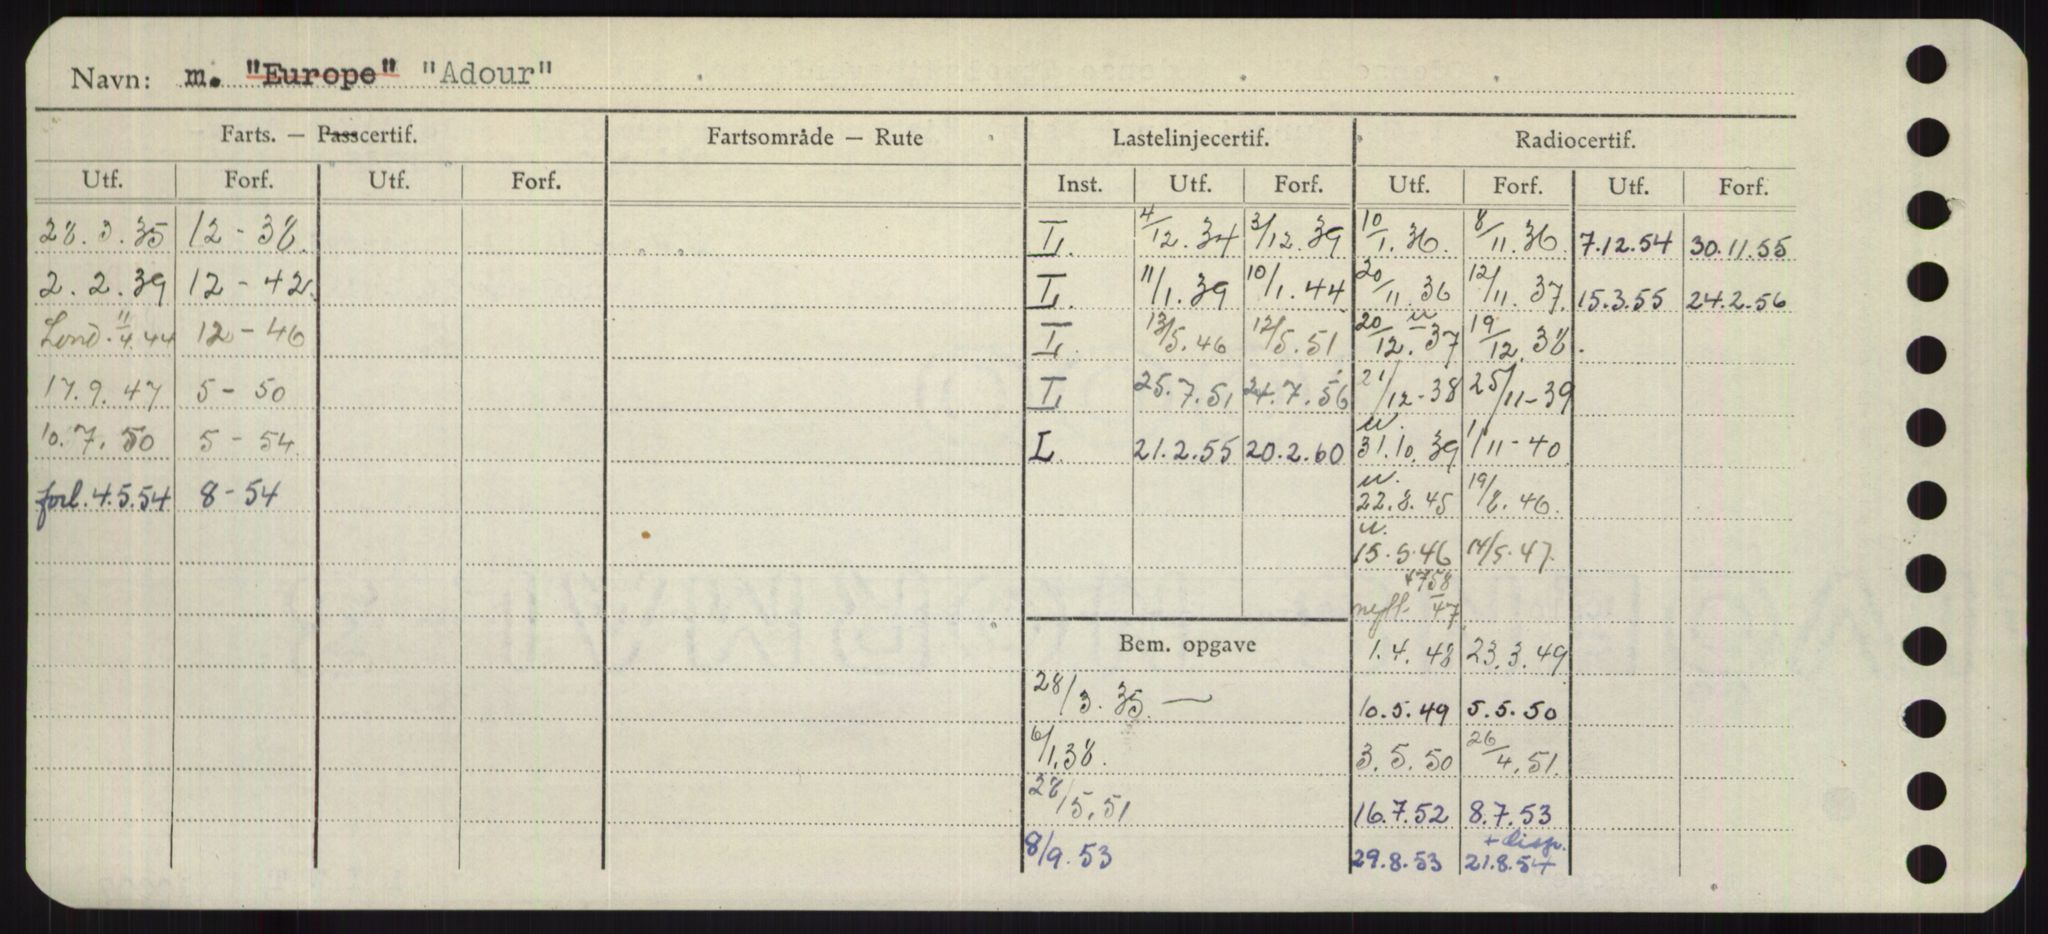 Navn: m. "Europe" "Adour"
Farts. — Passcertif. Fartsområde — Rute Lastelinjecertif. Radiocertif.
Utf. Forf. Utf. Forf. Inst. Utf. Forf. Utf. Forf. Utf. Forf.
28.3.35 12-38 L. 4/12.34 3/12.39 10/1.36. 8/11.36. 7.12.54 30.11.55
2.2.39 12-42. L. 11/1.39 10/1.44 20/11.36 12/11.37. 15.3.55 24.2.56
Lond. 11/4.44 12-46 L. 13/5.46 12/5.51 20/12.37 19/12.38.
17.9.47 5-50 L. 25.7.51 24.7.56 21/12-38 25/11-39
10.7.50 5-54 L. 21.2.55 20.2.60 u. 31.10.39 1/11-40
forl. 4.5.54 8-54 u. 22.8.45 19/8.46.
u. 15.5.46 14/5.47.
Bem. opgave 1.4.48 23.3.49
28/3.35. — 10.5.49 5.5.50
6/1.38. 3.5.50 26/4.51.
28/5.51 16.7.52 8.7.53
+ disp.
8/9.53 29.8.53 21.8.54